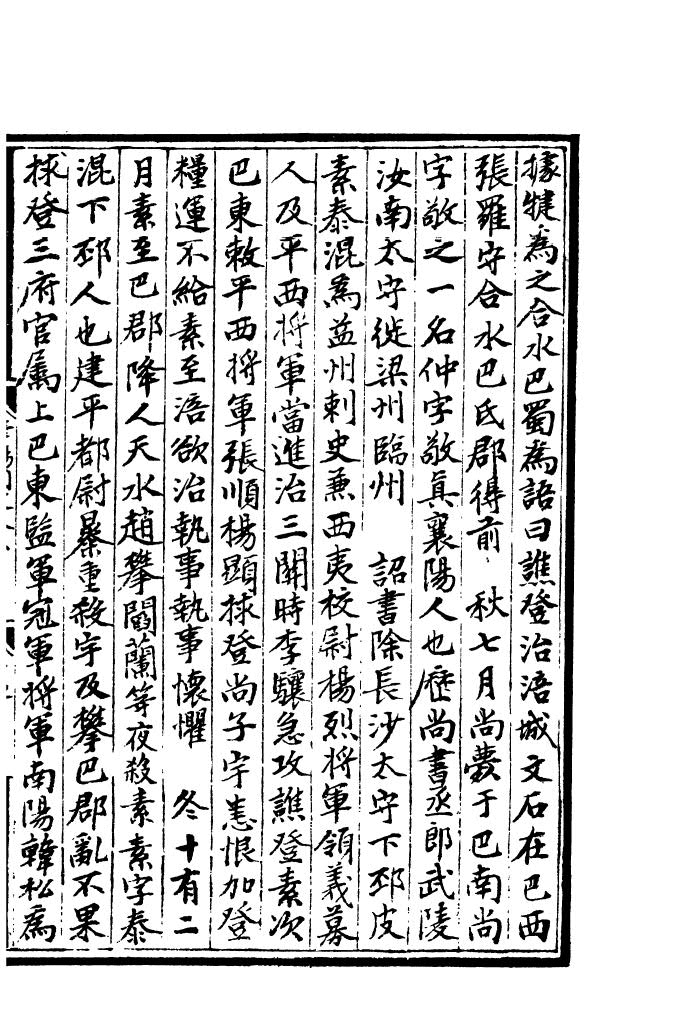 據犍為之合水巴蜀為語曰譙登治涪城文石在巴西
張羅守合水巴氐郡得前　秋七月尚薨于巴南尚
字敬之一名仲字敬真襄陽人也歷尚書丞郎武陵
汝南太守徙梁州臨州　詔書除長沙太守下邳皮
素泰混為益州刺史兼西夷校尉楊烈將軍領義募
人及平西將軍當進治三關時李驤急攻譙登素次
巴東敕平西將軍張順楊顯救登尚子宇恚恨加登
糧運不給素至涪欲治執事執事懷懼　冬十有二
月素至巴郡降人天水趙攀閻蘭等夜殺素素字泰
混下邳人也建平都尉暴重殺宇及攀巴郡亂不果
救登三府官屬上巴東監軍冠軍將軍南陽韓松為